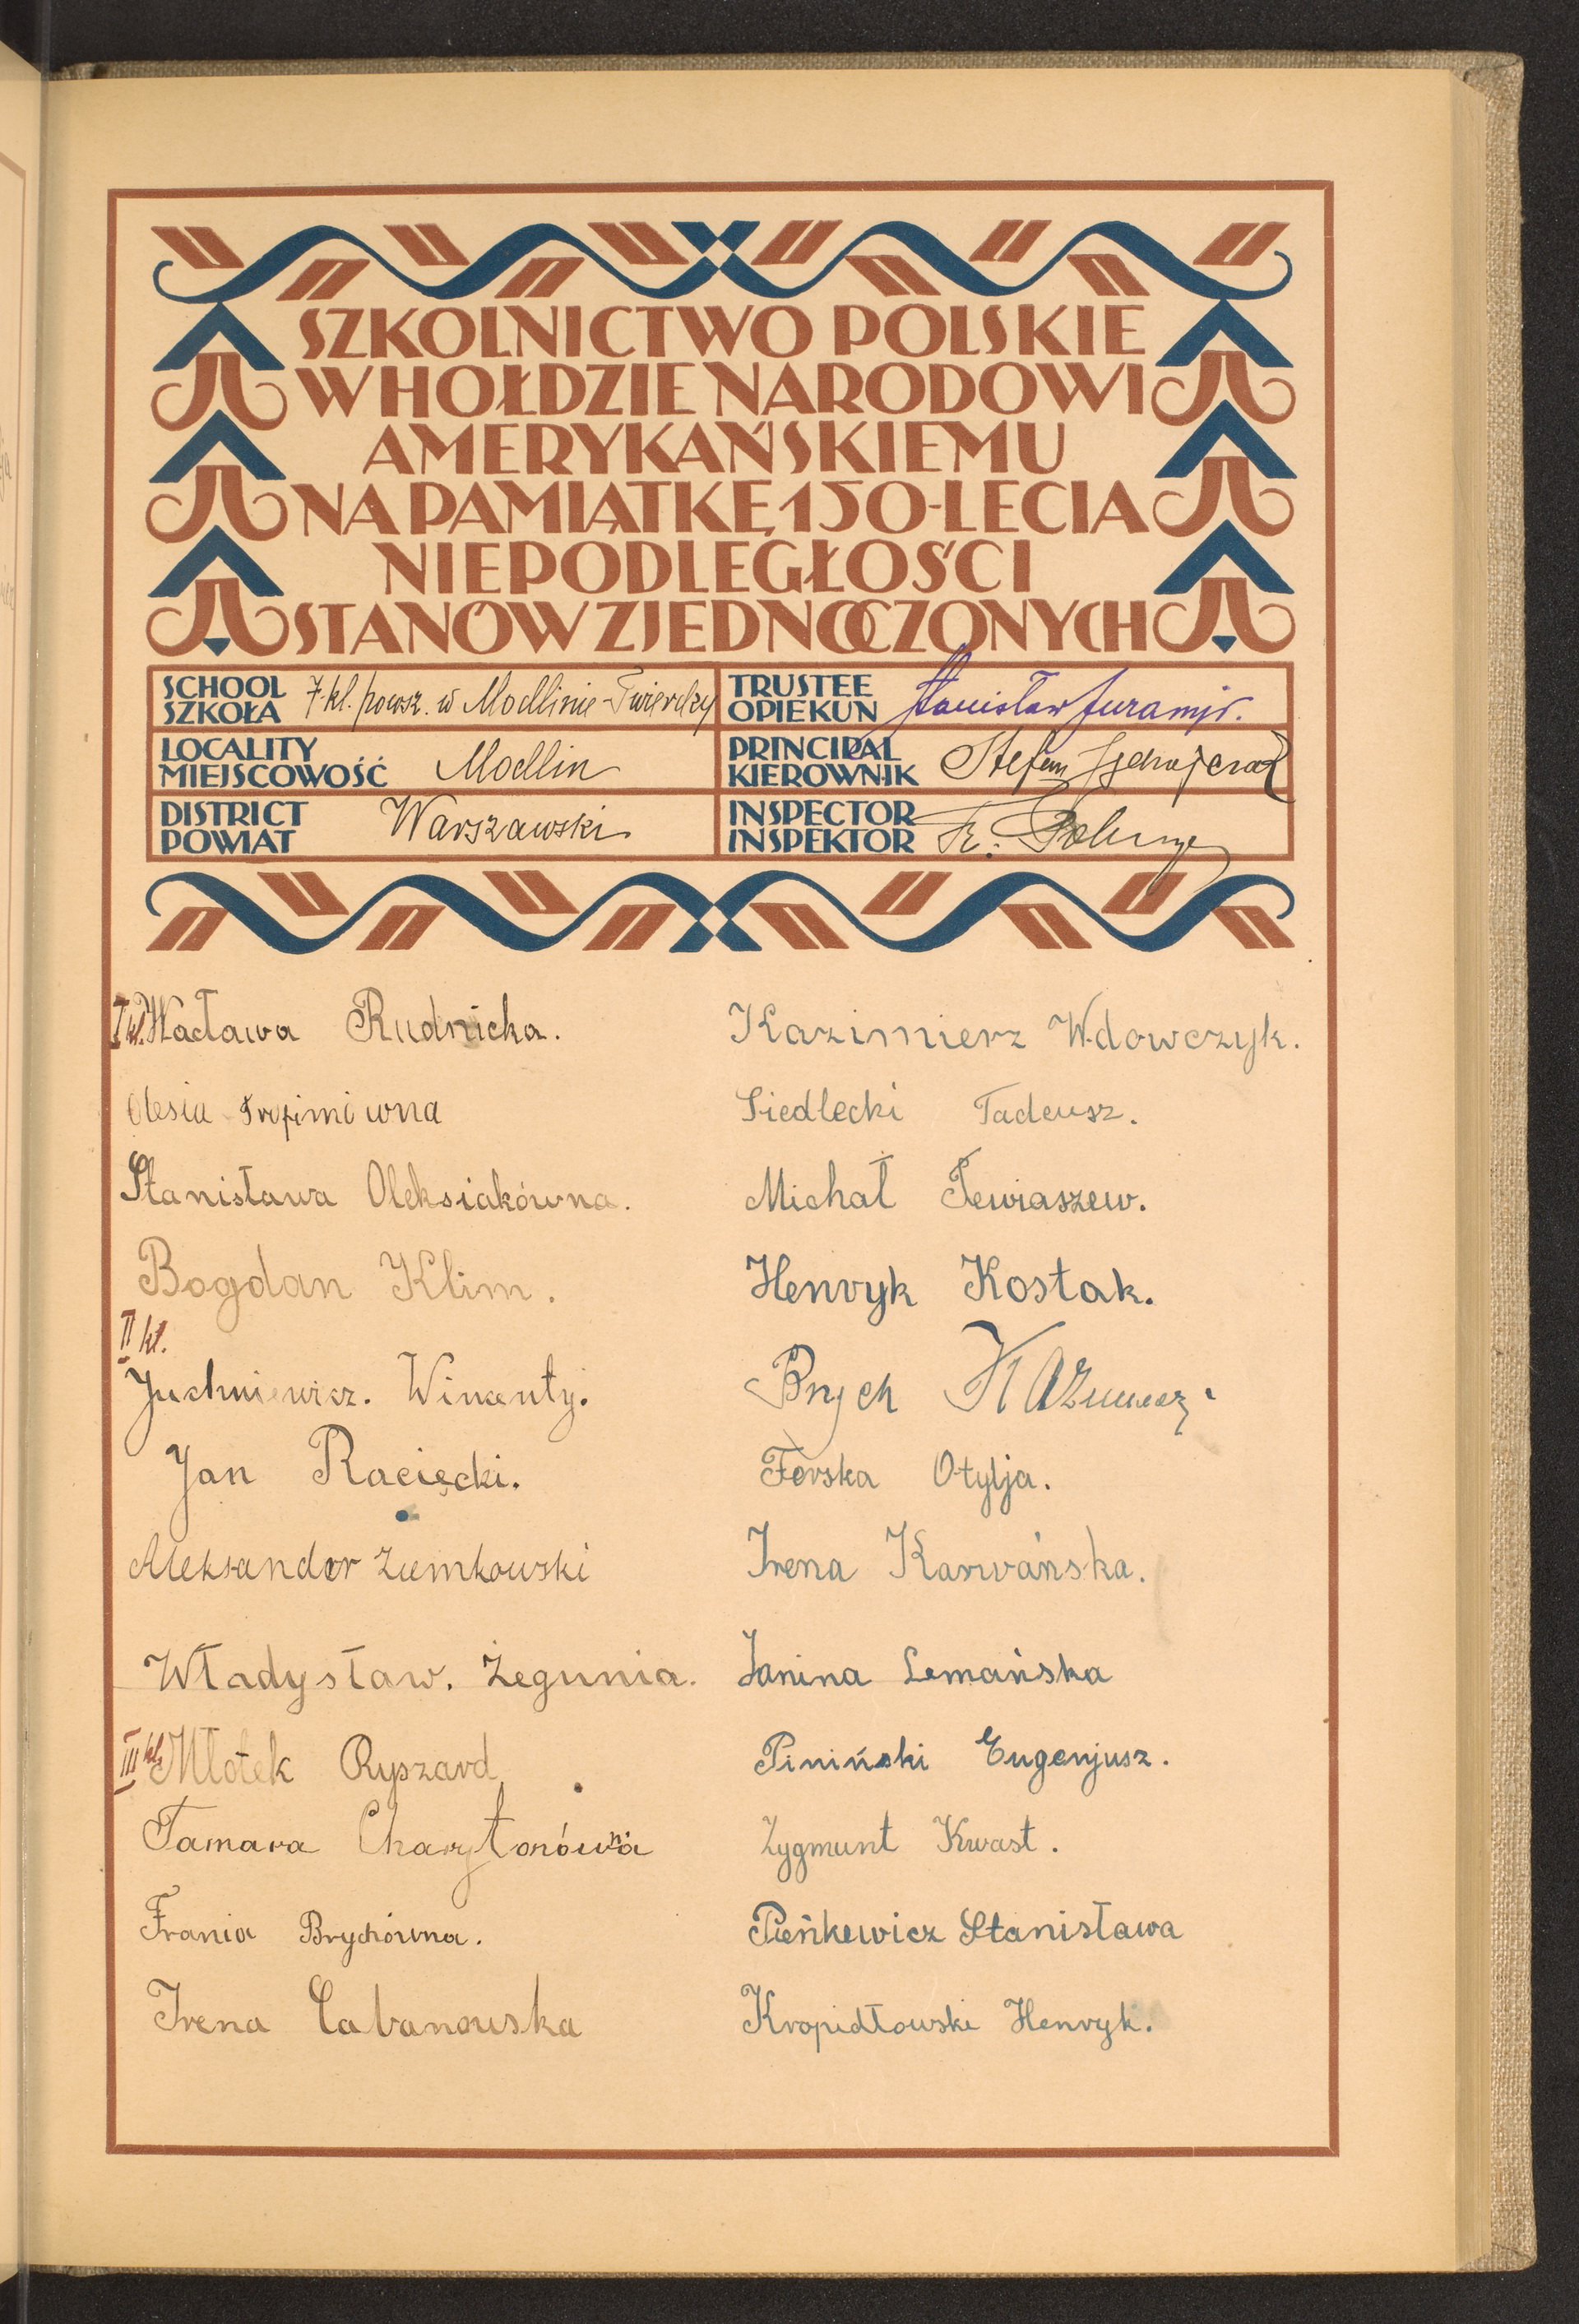 SZKOLNICTWO POLSKIE
W HOŁDZIE NARODOWI
AMERYKAŃSKIEMU
NA PAMIĄTKĘ 150-LECIA
NIEPODLEGŁOŚCI
STANÓW ZJEDNOCZONYCH
SCHOOL
SZKOŁA
7 kl. powsz. w Modlinie-Twierdzy
TRUSTEE
OPIEKUN
Stanisław
LOCALITY
MIEJSCOWOŚĆ
Modlin
PRINCIPAL
KIEROWNIK
Stefan
DISTRICT
POWIAT
Warszawski
INSPECTOR
INSPEKTOR
Fr.
I kl. Wacława Rudnicka.
Olesia Trofimiwna
Stanisława Oleksiakówna.
Bogdan Klim.
II kl.
Juchniewicz. Wincenty.
Jan Racięcki.
Aleksander Ziemkowski
Władysław. Żegunia.
III kl. Młotek Ryszard
Tamara Charytonówna
Frania Brychówna.
Irena Cabanowska
Kazimierz Wdowczyk.
Siedlecki Tadeusz.
Michał Tewiaszew.
Henryk Kostak.
Brych
Ferska Otylja.
Irena Karwańska.
Janina Lemańska
Piniński Eugenjusz.
Zygmunt Kwast.
Pieńkewicz Stanisława
Kropidłowski Henryk.